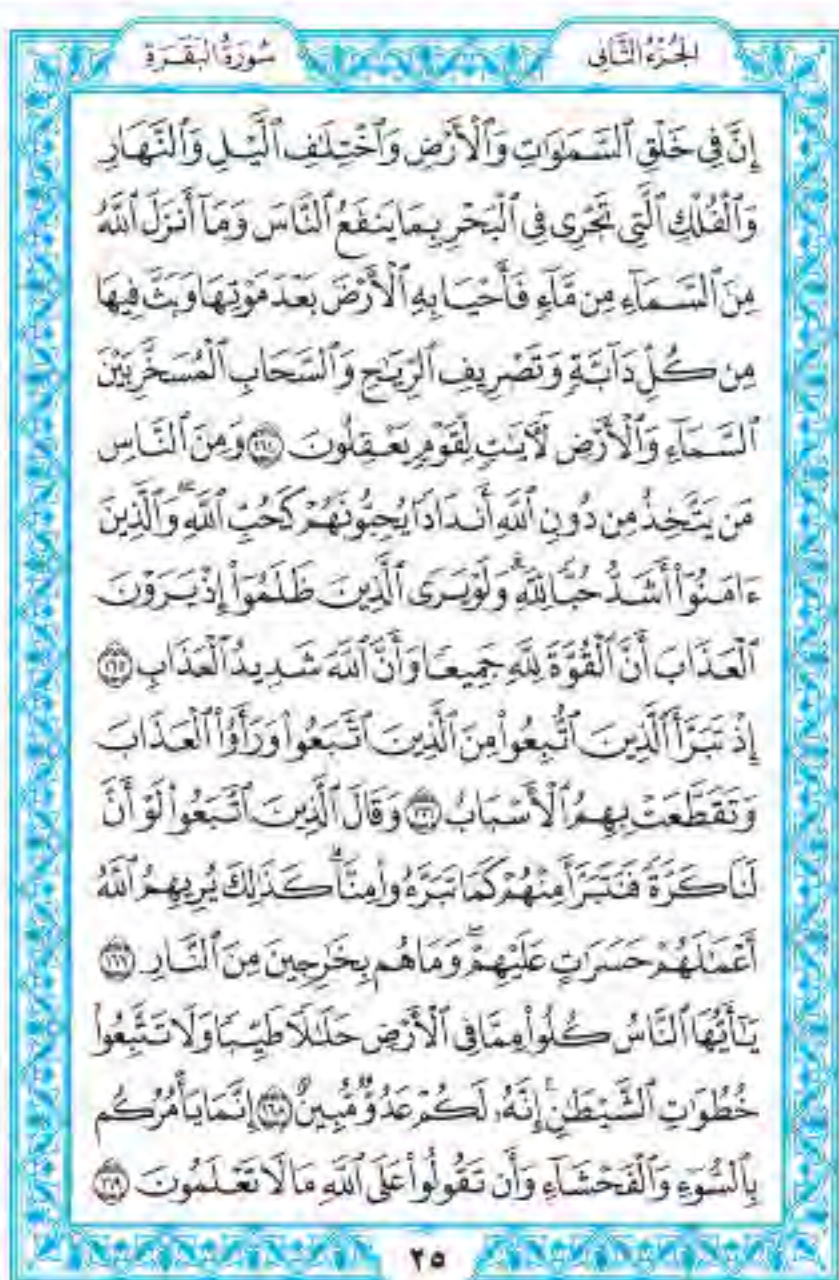 الجُزْءُ الثَّانِى
سُورَةُ البَقَرَةِ
إِنَّ فِى خَلْقِ ٱلسَّمَٰوَٰتِ وَٱلْأَرْضِ وَٱخْتِلَٰفِ ٱلَّيْلِ وَٱلنَّهَارِ
وَٱلْفُلْكِ ٱلَّتِى تَجْرِى فِى ٱلْبَحْرِ بِمَا يَنفَعُ ٱلنَّاسَ وَمَآ أَنزَلَ ٱللَّهُ
مِنَ ٱلسَّمَآءِ مِن مَّآءٍ فَأَحْيَا بِهِ ٱلْأَرْضَ بَعْدَ مَوْتِهَا وَبَثَّ فِيهَا
مِن كُلِّ دَآبَّةٍ وَتَصْرِيفِ ٱلرِّيَٰحِ وَٱلسَّحَابِ ٱلْمُسَخَّرِ بَيْنَ
ٱلسَّمَآءِ وَٱلْأَرْضِ لَءَايَٰتٍ لِّقَوْمٍ يَعْقِلُونَ ١٦٤ وَمِنَ ٱلنَّاسِ
مَن يَتَّخِذُ مِن دُونِ ٱللَّهِ أَندَادًا يُحِبُّونَهُمْ كَحُبِّ ٱللَّهِ ۖ وَٱلَّذِينَ
ءَامَنُوٓا۟ أَشَدُّ حُبًّا لِّلَّهِ ۗ وَلَوْ يَرَى ٱلَّذِينَ ظَلَمُوٓا۟ إِذْ يَرَوْنَ
ٱلْعَذَابَ أَنَّ ٱلْقُوَّةَ لِلَّهِ جَمِيعًا وَأَنَّ ٱللَّهَ شَدِيدُ ٱلْعَذَابِ ١٦٥
إِذْ تَبَرَّأَ ٱلَّذِينَ ٱتُّبِعُوا۟ مِنَ ٱلَّذِينَ ٱتَّبَعُوا۟ وَرَأَوُا۟ ٱلْعَذَابَ
وَتَقَطَّعَتْ بِهِمُ ٱلْأَسْبَابُ ١٦٦ وَقَالَ ٱلَّذِينَ ٱتَّبَعُوا۟ لَوْ أَنَّ
لَنَا كَرَّةً فَنَتَبَرَّأَ مِنْهُمْ كَمَا تَبَرَّءُوا۟ مِنَّا ۗ كَذَٰلِكَ يُرِيهِمُ ٱللَّهُ
أَعْمَٰلَهُمْ حَسَرَٰتٍ عَلَيْهِمْ ۖ وَمَا هُم بِخَٰرِجِينَ مِنَ ٱلنَّارِ ١٦٧
يَٰٓأَيُّهَا ٱلنَّاسُ كُلُوا۟ مِمَّا فِى ٱلْأَرْضِ حَلَٰلًا طَيِّبًا وَلَا تَتَّبِعُوا۟
خُطُوَٰتِ ٱلشَّيْطَٰنِ ۚ إِنَّهُۥ لَكُمْ عَدُوٌّ مُّبِينٌ ١٦٨ إِنَّمَا يَأْمُرُكُم
بِٱلسُّوٓءِ وَٱلْفَحْشَآءِ وَأَن تَقُولُوا۟ عَلَى ٱللَّهِ مَا لَا تَعْلَمُونَ ١٦٩
٢٥